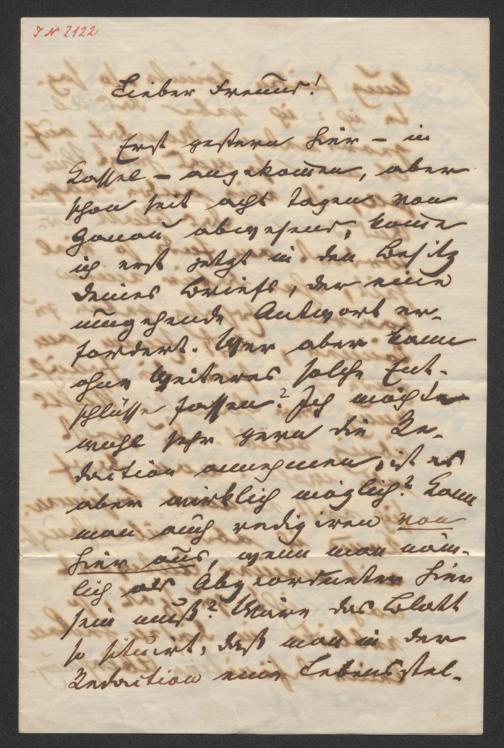 J N 2122
Lieber Freund!
Erst gestern hier – in
Cassel – angekommen, aber
schon seit acht Tagen von
Hanau abwesend, komme
ich erst jetzt in den Besitz
Deines Briefs, der eine
umgehende Antwort er-
fordert. Wer aber kann
ohne Weiteres solche Ent-
schlüsse fassen? Ich möchte
wohl sehr gern die Re-
daction annehmen, ist es
aber wirklich möglich? Kann
man auch redigiren von
hier aus, wenn man näm-
lich als Abgeordneter hier
sein muß? Wäre das Blatt
so situirt, daß man in der
Redaction eine Lebensstel-